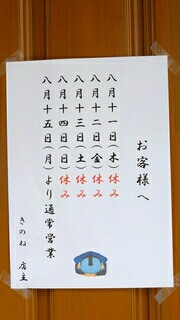 お客様へ
八月十一日(木)休み
八月十二日(金)休み
八月十三日(土)休み
八月十四日(日)休み
八月十五日(月)より通常営業
きのね 店主